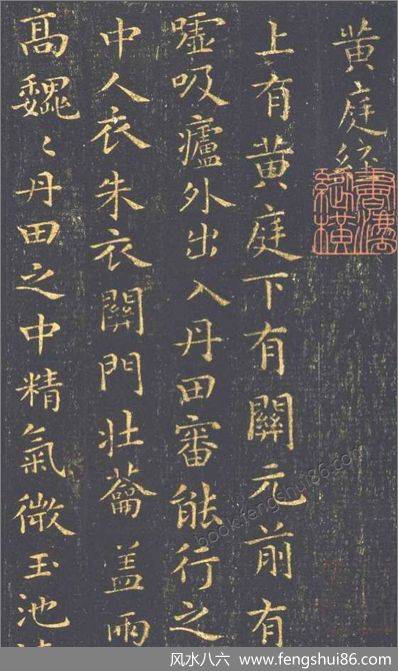 黄庭經
書儒縱橫
上有黄庭下有關元前有
嘘吸廬外出入丹田審能行之
中人衣朱衣關門壯蘥盖兩
高巍〻丹田之中精氣微玉池
book.fengshui86.com
风水八六 www.fengshui86.com